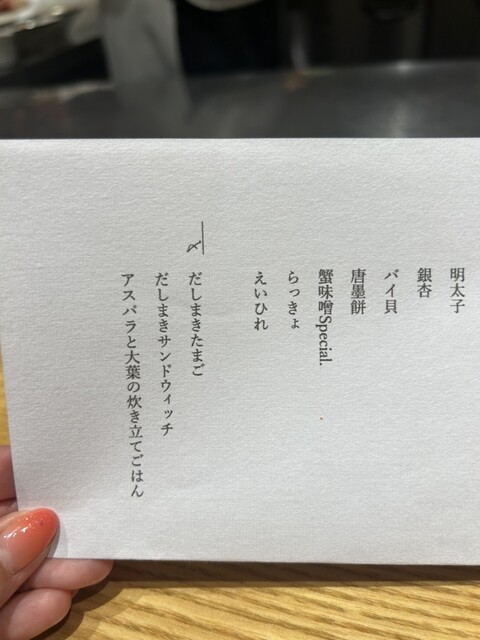 明太子
銀杏
バイ貝
唐墨餅
蟹味噌Special.
らっきょ
えいひれ
〆
だしまきたまご
だしまきサンドウィッチ
アスパラと大葉の炊き立てごはん